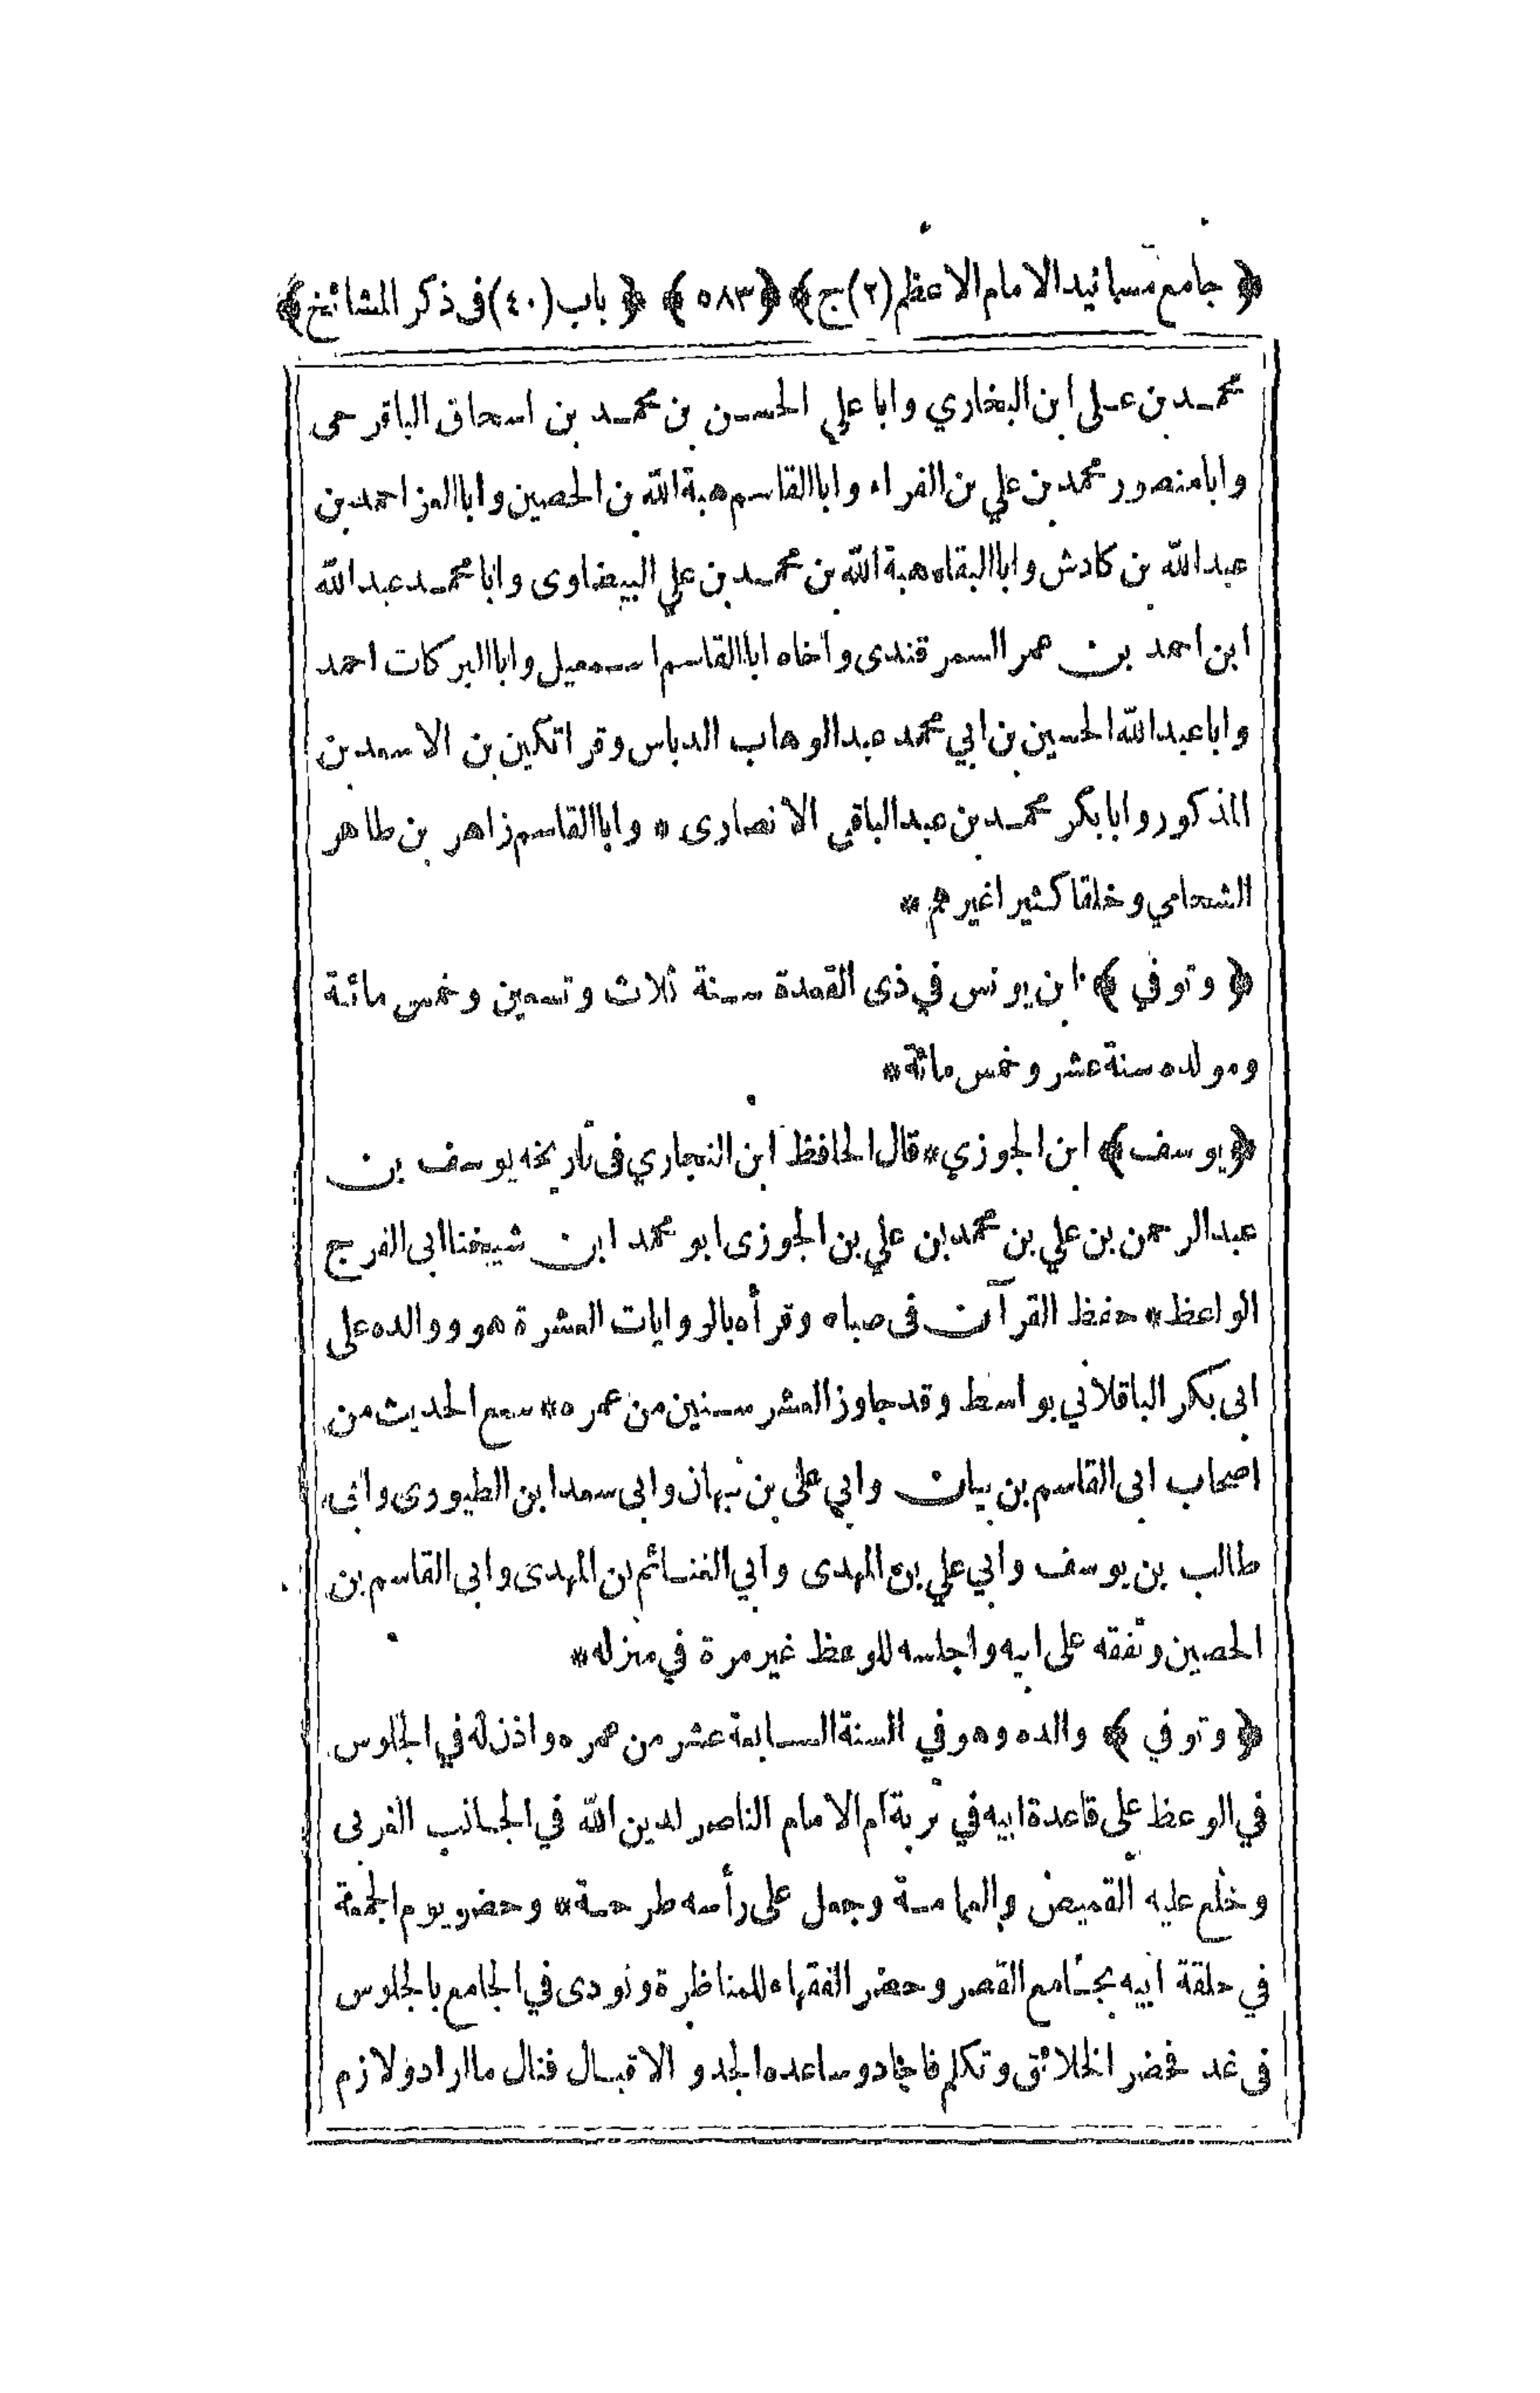 ﴿ جامع مسانيد الامام الاعظم (٢) ج ﴾ ﴿ ٥٨٣ ﴾ ﴿ باب (٤٠) فى ذكر المشائخ ﴾
محمد بن على ابن البخاري وابا علي الحسن بن محمد بن اسحاق الباقر حى
وابا منصور محمد بن علي بن الفراء وابا القاسم هبة الله بن الحصين وابا العز احمد بن
عبد الله بن كادش وابا البقاء هبة الله بن محمد بن علي البيضاوى وابا محمد عبد الله
ابن احمد بن عمر السمرقندى واخاه ابا القاسم اسمعيل وابا البركات احمد
وابا عبد الله الحسين بن ابي محمد عبد الوهاب الدباس وقراتكين بن الاسعد بن
المذكور وابا بكر محمد بن عبد الباقي الانصارى * وابا القاسم زاهر بن طاهر
الشحامي وخلقا كثيرا غيرهم *
﴿ وتوفي ﴾ ابن يونس في ذى القعدة سنة ثلاث وتسعين وخمس مائة
ومولده سنة عشر وخمس مائة *
﴿ يوسف ﴾ ابن الجوزي * قال الحافظ ابن النجاري فى تاريخه يوسف بن
عبد الرحمن بن علي بن محمد بن علي بن الجوزى ابو محمد ابن شيخنا ابى الفرج
الواعظ * حفظ القرآن فى صباه وقرأه بالروايات العشرة هو ووالده على
ابى بكر الباقلاني بواسط وقد جاوز العشر سنين من عمره * سمع الحديث من
اصحاب ابى القاسم بن بيان وابي على بن نبهان وابى سعد ابن الطيورى وابى
طالب بن يوسف وابي علي بن المهدى وابي الغنائم بن المهدى وابى القاسم بن
الحصين وتفقه على ابيه واجلسه للوعظ غير مرة في منزله *
﴿ وتوفي ﴾ والده وهو في السنة السابعة عشر من عمره واذن له في الجلوس
في الوعظ على قاعدة ابيه في تربة ام الامام الناصر لدين الله في الجانب الغربى
وخلع عليه القميص والعمامة وجعل على رأسه طرحة * وحضر يوم الجمعة
في حلقة ابيه بجامع القصر وحضر الفقهاء للمناظرة ونودى في الجامع بالجلوس
فى غد فحضر الخلائق وتكلم فاجاد وساعده الجد والاقبال فنال ما اراد ولازم